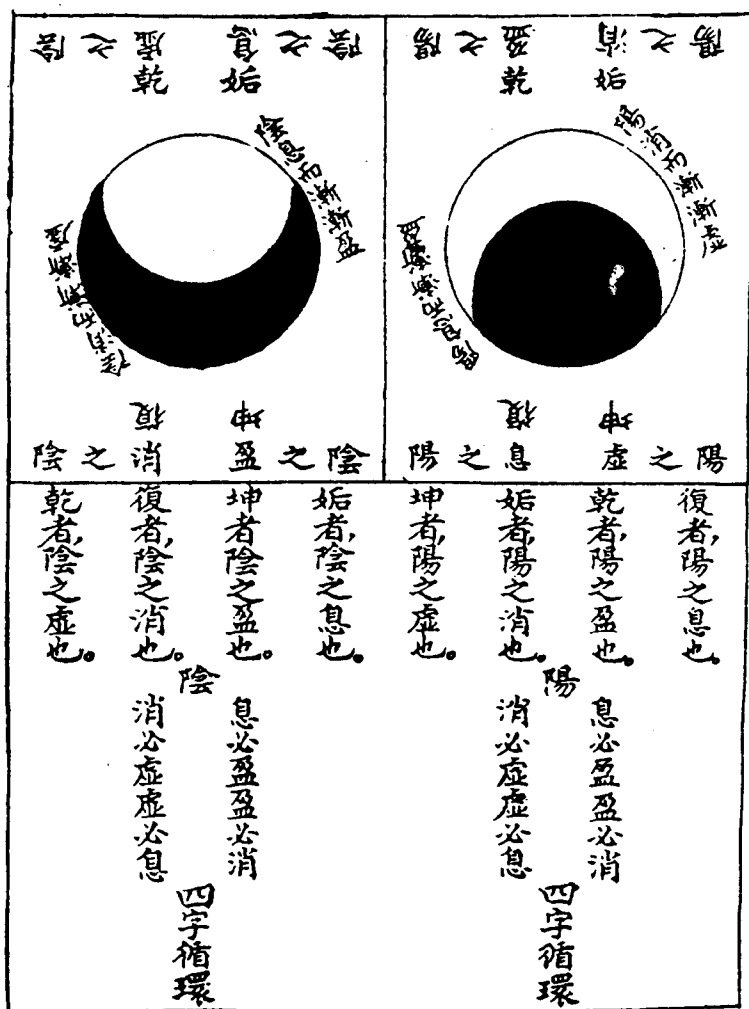 陽之消
姤
陽之盈
乾
陽消而漸漸虛
陽息而漸漸盈
坤
陽之虛
復
陽之息
陰之息
姤
陰之虛
乾
陰息而漸漸盈
陰消而漸漸虛
坤
陰之盈
復
陰之消
復者，陽之息也。
乾者，陽之盈也。
姤者，陽之消也。
坤者，陽之虛也。
陽
息必盈盈必消
消必虛虛必息
四字循環
姤者，陰之息也。
坤者陰之盈也。
復者，陰之消也。
乾者，陰之虛也。
陰
息必盈盈必消
消必虛虛必息
四字循環